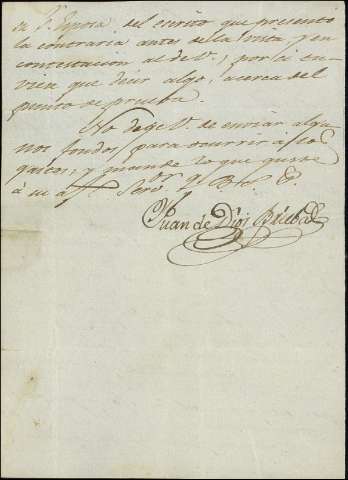 del escrito que presentó
la contraria antes de la Vista y en
contestacion al de V., por si
que decir algo, acerca del
punto de prueba.
No dege V. de enviar algu-
nos fondos para ocurrir á los
gastos, y mande lo que guste
á su af. Serv. Q. B. S. M.
Juan de Dios